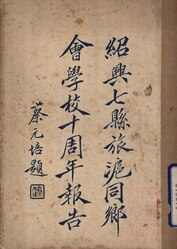 紹興七縣旅滬同鄉
會學校十周年報告
蔡元培題